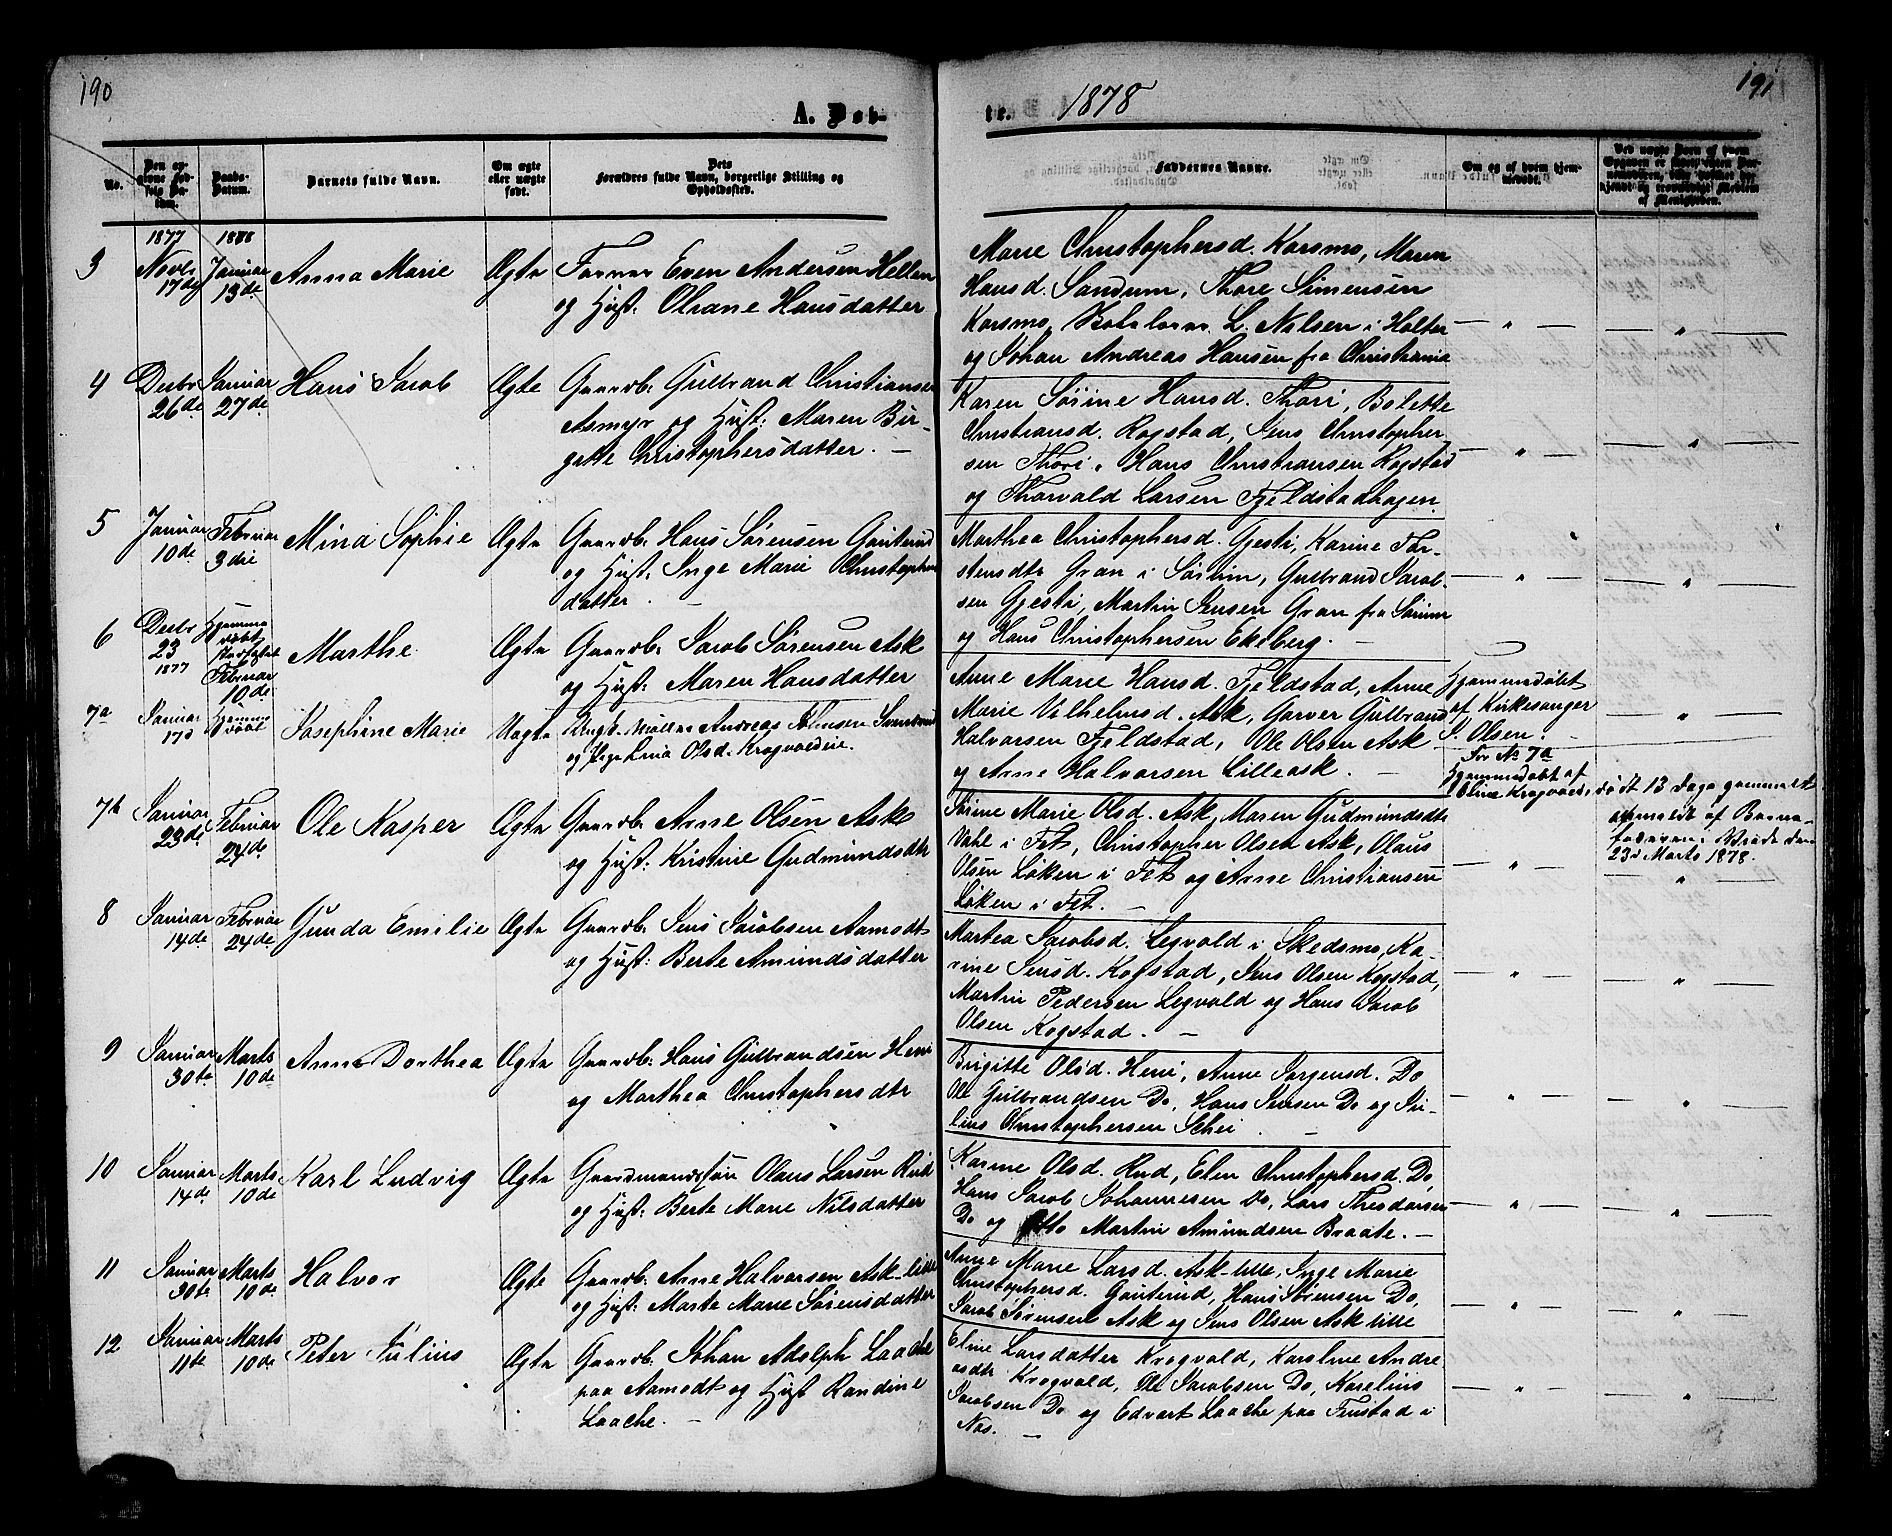 190
A. Døb-
No.
Den opgivne Fødsels Datum.
Daabs-Datum.
Barnets fulde Navn.
Om ægte eller uægte født.
Forældres fulde Navn, borgerlige Stilling og Opholdssted.
1877
1878
3
Novbr 17de
Januar 13de
Anna Marie
Ægte
Even Andersen Hellen
og Hust: Oliane Hansdatter
4
Decbr 26de
Januar 27de
Hans Jacob
Ægte
Gaardb: Gulbrand Christiansen
Asmyr og Hust: Maren Bir-
gette Christophersdatter. —
5
Januar 10de
Februar 3die
Mina Sophie
Ægte
Gaardb: Hans Sørensen Gauterud
og Hust: Inge Marie Christophers
datter. —
6
Decbr 23 1877
Hjemme døbt
Februar 10de
Marthe
Ægte
Gaardb: Jacob Sørensen Ask
og Hust: Maren Hansdatter
7a
Januar 17d
Hjemme døbt
Josephine Marie
Uægte
Ungk. Møller Andreas
og Pige Lina Olsd. Krogvoldeie.
7b
Januar 23de
Februar 24de
Ole Kasper
Ægte
Gaardb: Arne Olsen Ask
og Hust: Kristine Gudmundsdtr
8
Januar 14de
Februar 24de
Gunda Emilie
Ægte
Gaardb: Jens Jacobsen Aamodt
og Hust: Berte Amundsdatter
9
Januar 30te
Marts 10de
Anne Dorthea
Ægte
Gaardb: Hans Gulbrandsen Heni
og Marthea Christophersdtr
10
Januar 14de
Marts 10de
Karl Ludvig
Ægte
Gaardmandssøn Olaus Larsen Rud
og Hust: Berte Marie Nilsdatter
11
Januar 30te
Marts 10de
Halvor
Ægte
Gaardb: Arne Halvorsen Ask-lille
og Hust: Marte Marie Sørensdatter
12
Januar 11te
Marts 10de
Peter Julius
Ægte
Gaardb: Johan Adolph Laache
paa Aamodt og Hust Randine
Laache. —
te.
1878
191
Faddernes Navne.
Om og af hvem hjemmedøbt.
Marie Christophersd. Karsmo, Maren
Hansd. Sandum, Thore Simensen
Karsmo, L. Nilsen i Holter
og Johan Andreas Hansen fra Christiania
Karen Sørine Hansd. Thori, Bolette
Christiansd. Rogstad, Jens Christopher-
sen Thori, Hans Christiansen Rogstad
og Thorvald Larsen Fjeldstadhagen.
Marthea Christophersd. Gjesti, Karine Tor-
stensdtr Gran i Sørum, Gulbrand Jacob-
sen Gjesti, Martin Jensen Gran fra Sørum
og Hans Christophersen Ekeberg. —
Anne Marie Hansd. Fjeldstad, Anne
Marie Vilhelmsd. Ask, Garver Gulbrand
Halvorsen Fjeldstad, Ole Olsen Ask
og Arne Halvorsen Lilleask. —
Hjemmedøbt
af Kirkesanger
P. Olsen.
For No 7a
Hjemmedøbt af
Oline Krogvoldei
Sørine Marie Olsd. Ask, Maren Gudmundsdtr
Vahl i Fet, Christopher Olsen Ask, Olaus
Olsen Løken i Fet og Arne Christiansen
Løken i Fet. —
død 13 Dage gammel
anmeldt af Barne-
faderen i Brev den
23d Marts 1878.
Martea Jacobsd. Legvold i Skedsmo, Ka-
rine Jensd. Kogstad, Jens Olsen Kogstad,
Martin Pedersen Legvold og Hans Jacob
Olsen Kogstad. —
Birgitte Olsd. Heni, Anne Jørgensd. Do
Ole Gulbrandsen Do, Hans Jensen Do og Ju-
lius Christophersen Schei. —
Karine Olsd. Rud, Elen Christophersd. Do,
Hans Jacob Johannesen Do, Lars Theodorsen
Do og Otto Martin Amundsen Braate. —
Anne Marie Larsd. Ask-lille, Inge Marie
Christophersd. Gauterud, Hans Sørensen Do,
Jacob Sørensen Ask og Jens Olsen Ask lille
Eline Larsdatter Krogvold, Karoline Andre-
asdtr Krogvold, Ole Jacobsen Do, Karelius
Jacobsen Do og Edvart Laache paa Finstad i
Næs. —